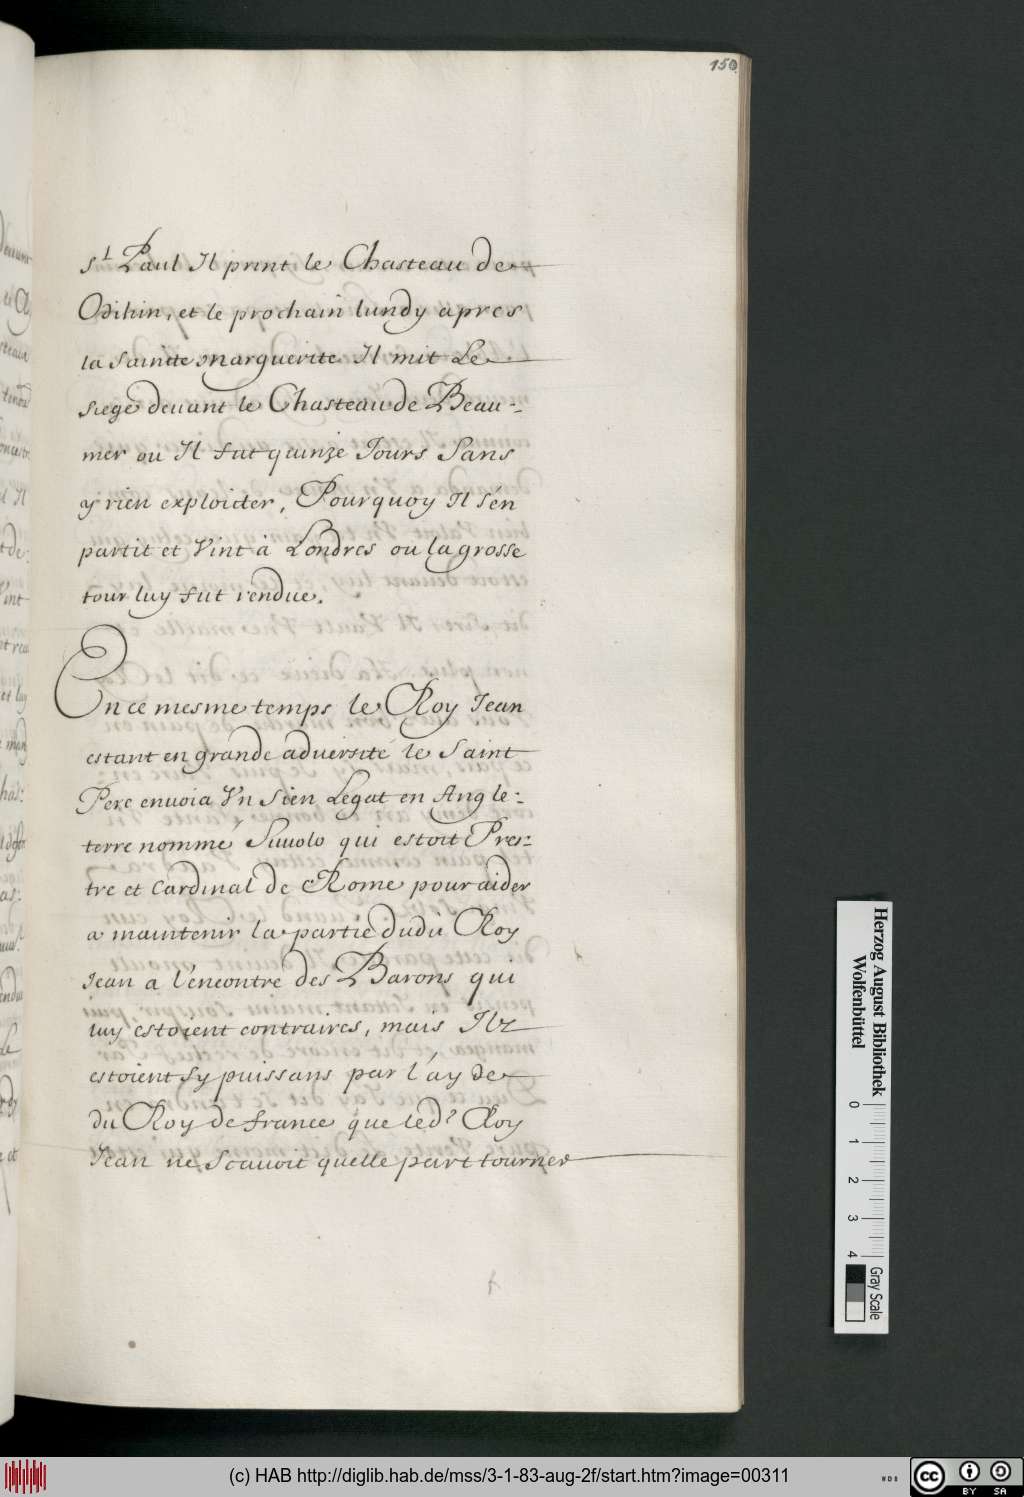 150
St Paul Il print le Chasteau de
Odihin, et le prochain lundy apres
la Saincte marguerite Il mit Le
siege devant le Chasteau de Beau-
mer ou Il fut quinze Jours Sans
y rien exploicter, Pourquoy Il s'en
partit et Vint à Londres ou la grosse
tour luy fut rendue.
En ce mesme temps le Roy Jean
estant en grande aduersité le Saint
Pere enuoia Vn Sien Legat en Angle-
terre nommé Suuolo qui estoit Pres-
tre et Cardinal de Rome pour aider
a maintenir la partie dudit Roy
Jean a l'encontre des Barons qui
luy estoient contraires, mais Ilz
estoient sy puissans par l'ayde
du Roy de france que led? Roy
Jean ne scauoit quelle part tourner
Herzog August Bibliothek
Wolfenbüttel
0 1 2 3 4
Gray Scale
(c) HAB http://diglib.hab.de/mss/3-1-83-aug-2f/start.htm?image=00311
WDB
cc BY SA